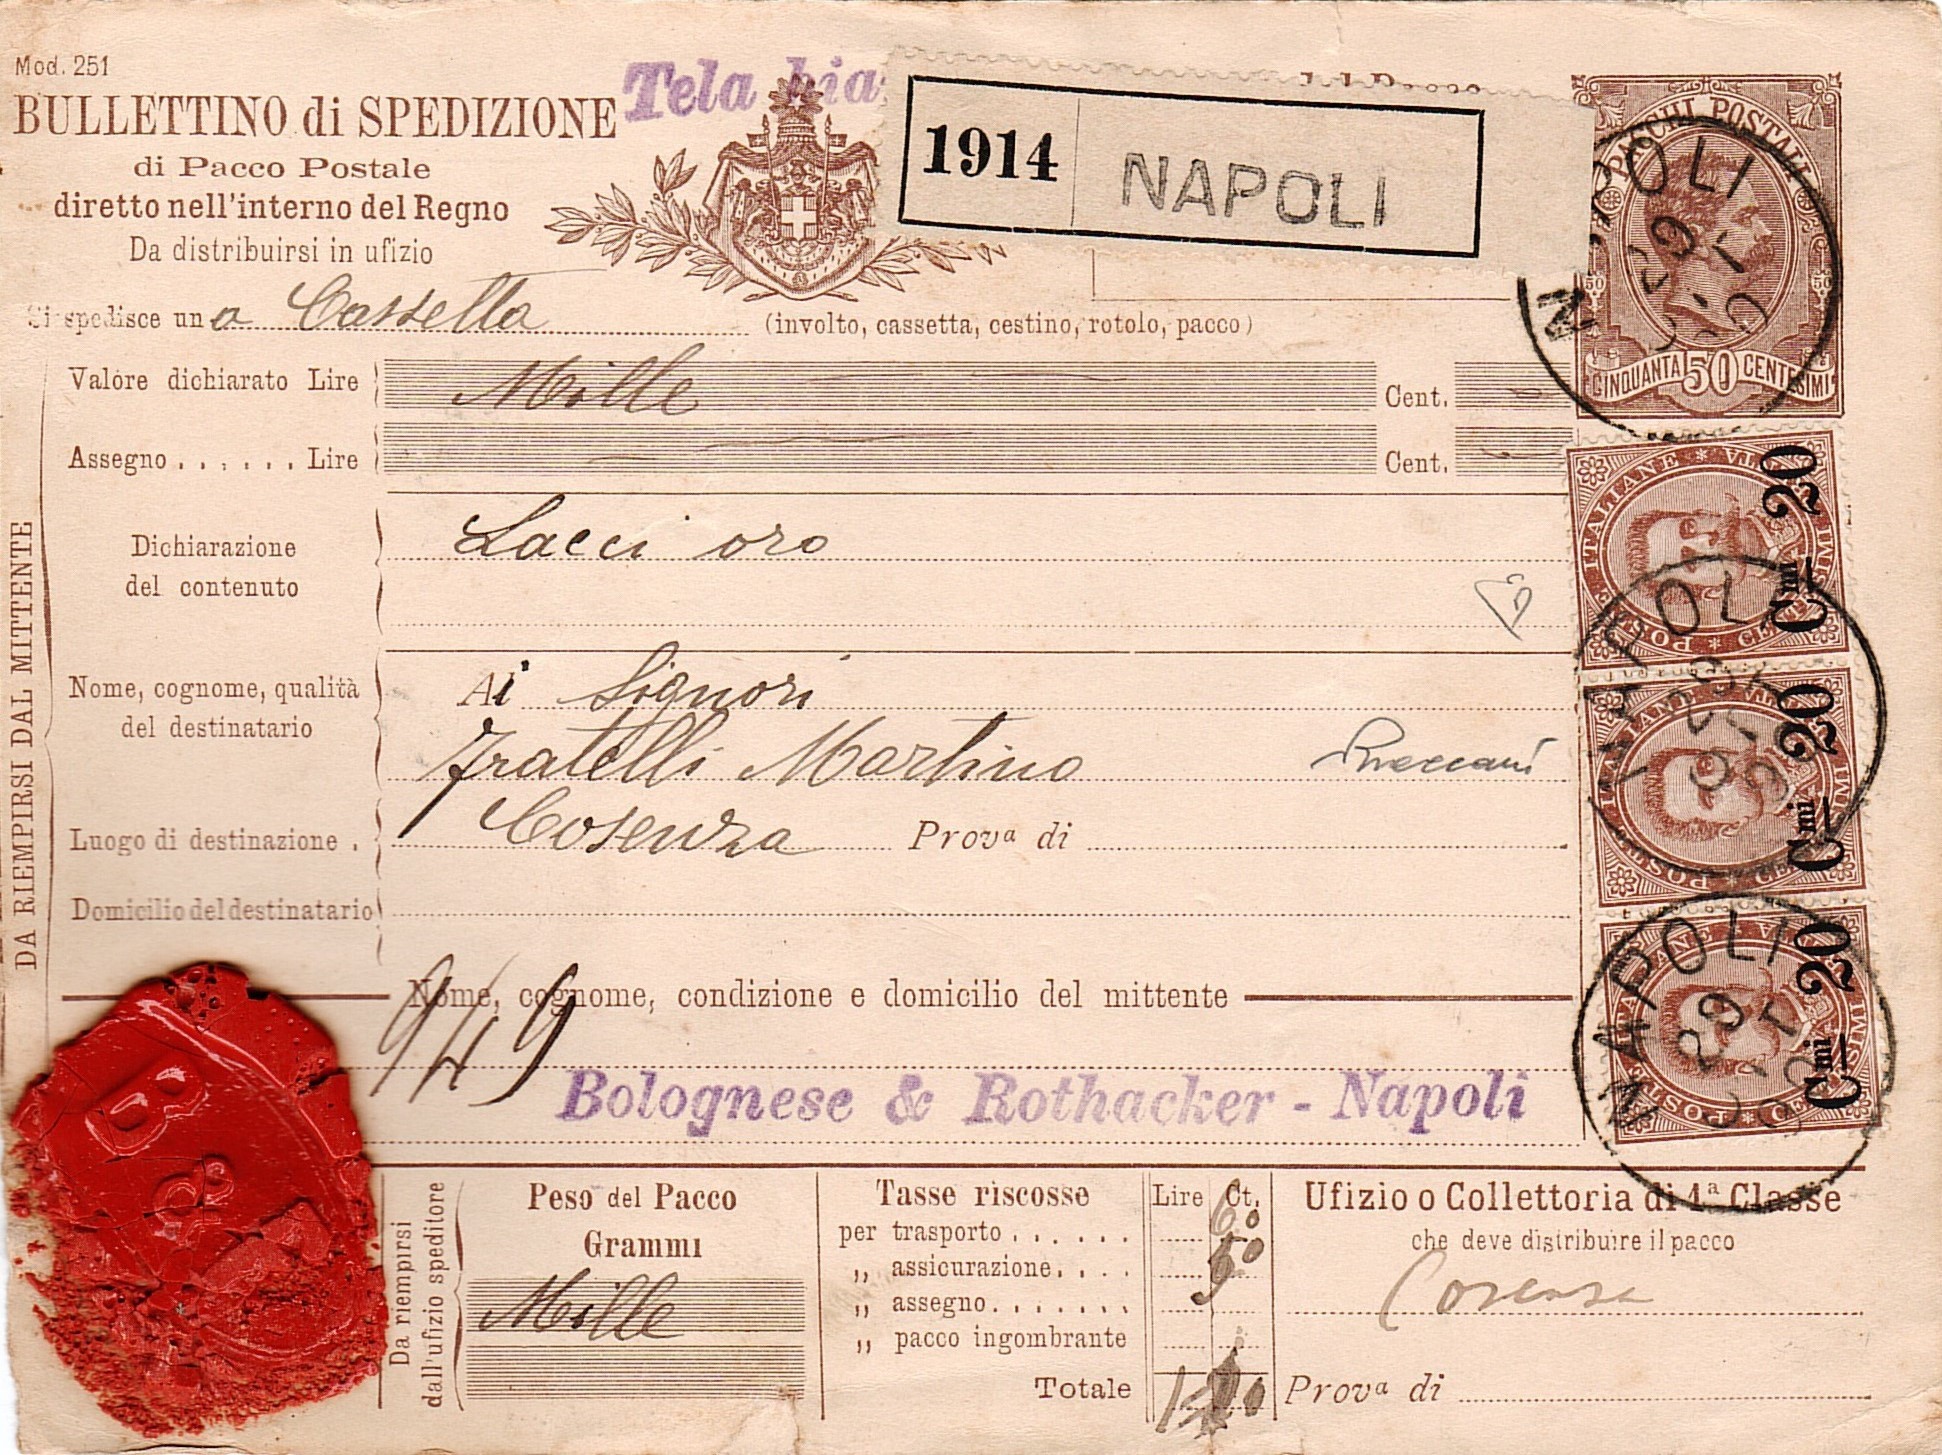 Mod. 251
Tela bia
BULLETTINO di SPEDIZIONE
di Pacco Postale
diretto nell'interno del Regno
Da distribuirsi in ufizio
1914 NAPOLI
PACCHI POSTALI
50 50
CINQUANTA 50 CENTESIMI
NAPOLI
29
Si spedisce una Cassetta (involto, cassetta, cestino, rotolo, pacco)
DA RIEMPIRSI DAL MITTENTE
Valore dichiarato Lire Mille Cent.
Assegno . . . . . . Lire Cent.
Dichiarazione
del contenuto
Lacci oro
Nome, cognome, qualità
del destinatario
Ai Signori
Fratelli Martino
Luogo di destinazione . Cosenza Prova di
Domicilio del destinatario
Cmi 20
NAPOLI
Cmi 20
Cmi 20
NAPOLI
29
Nome, cognome, condizione e domicilio del mittente
949
Bolognese & Rothacker - Napoli
B
&
R
Da riempirsi
dall'ufizio speditore
Peso del Pacco
Grammi
Mille
Tasse riscosse Lire Ct.
per trasporto . . . . . . 60
„ assicurazione . . . . 50
„ assegno . . . . . . .
„ pacco ingombrante
Totale
Ufizio o Collettoria di 1ª Classe
che deve distribuire il pacco
Cosenza
Prova di